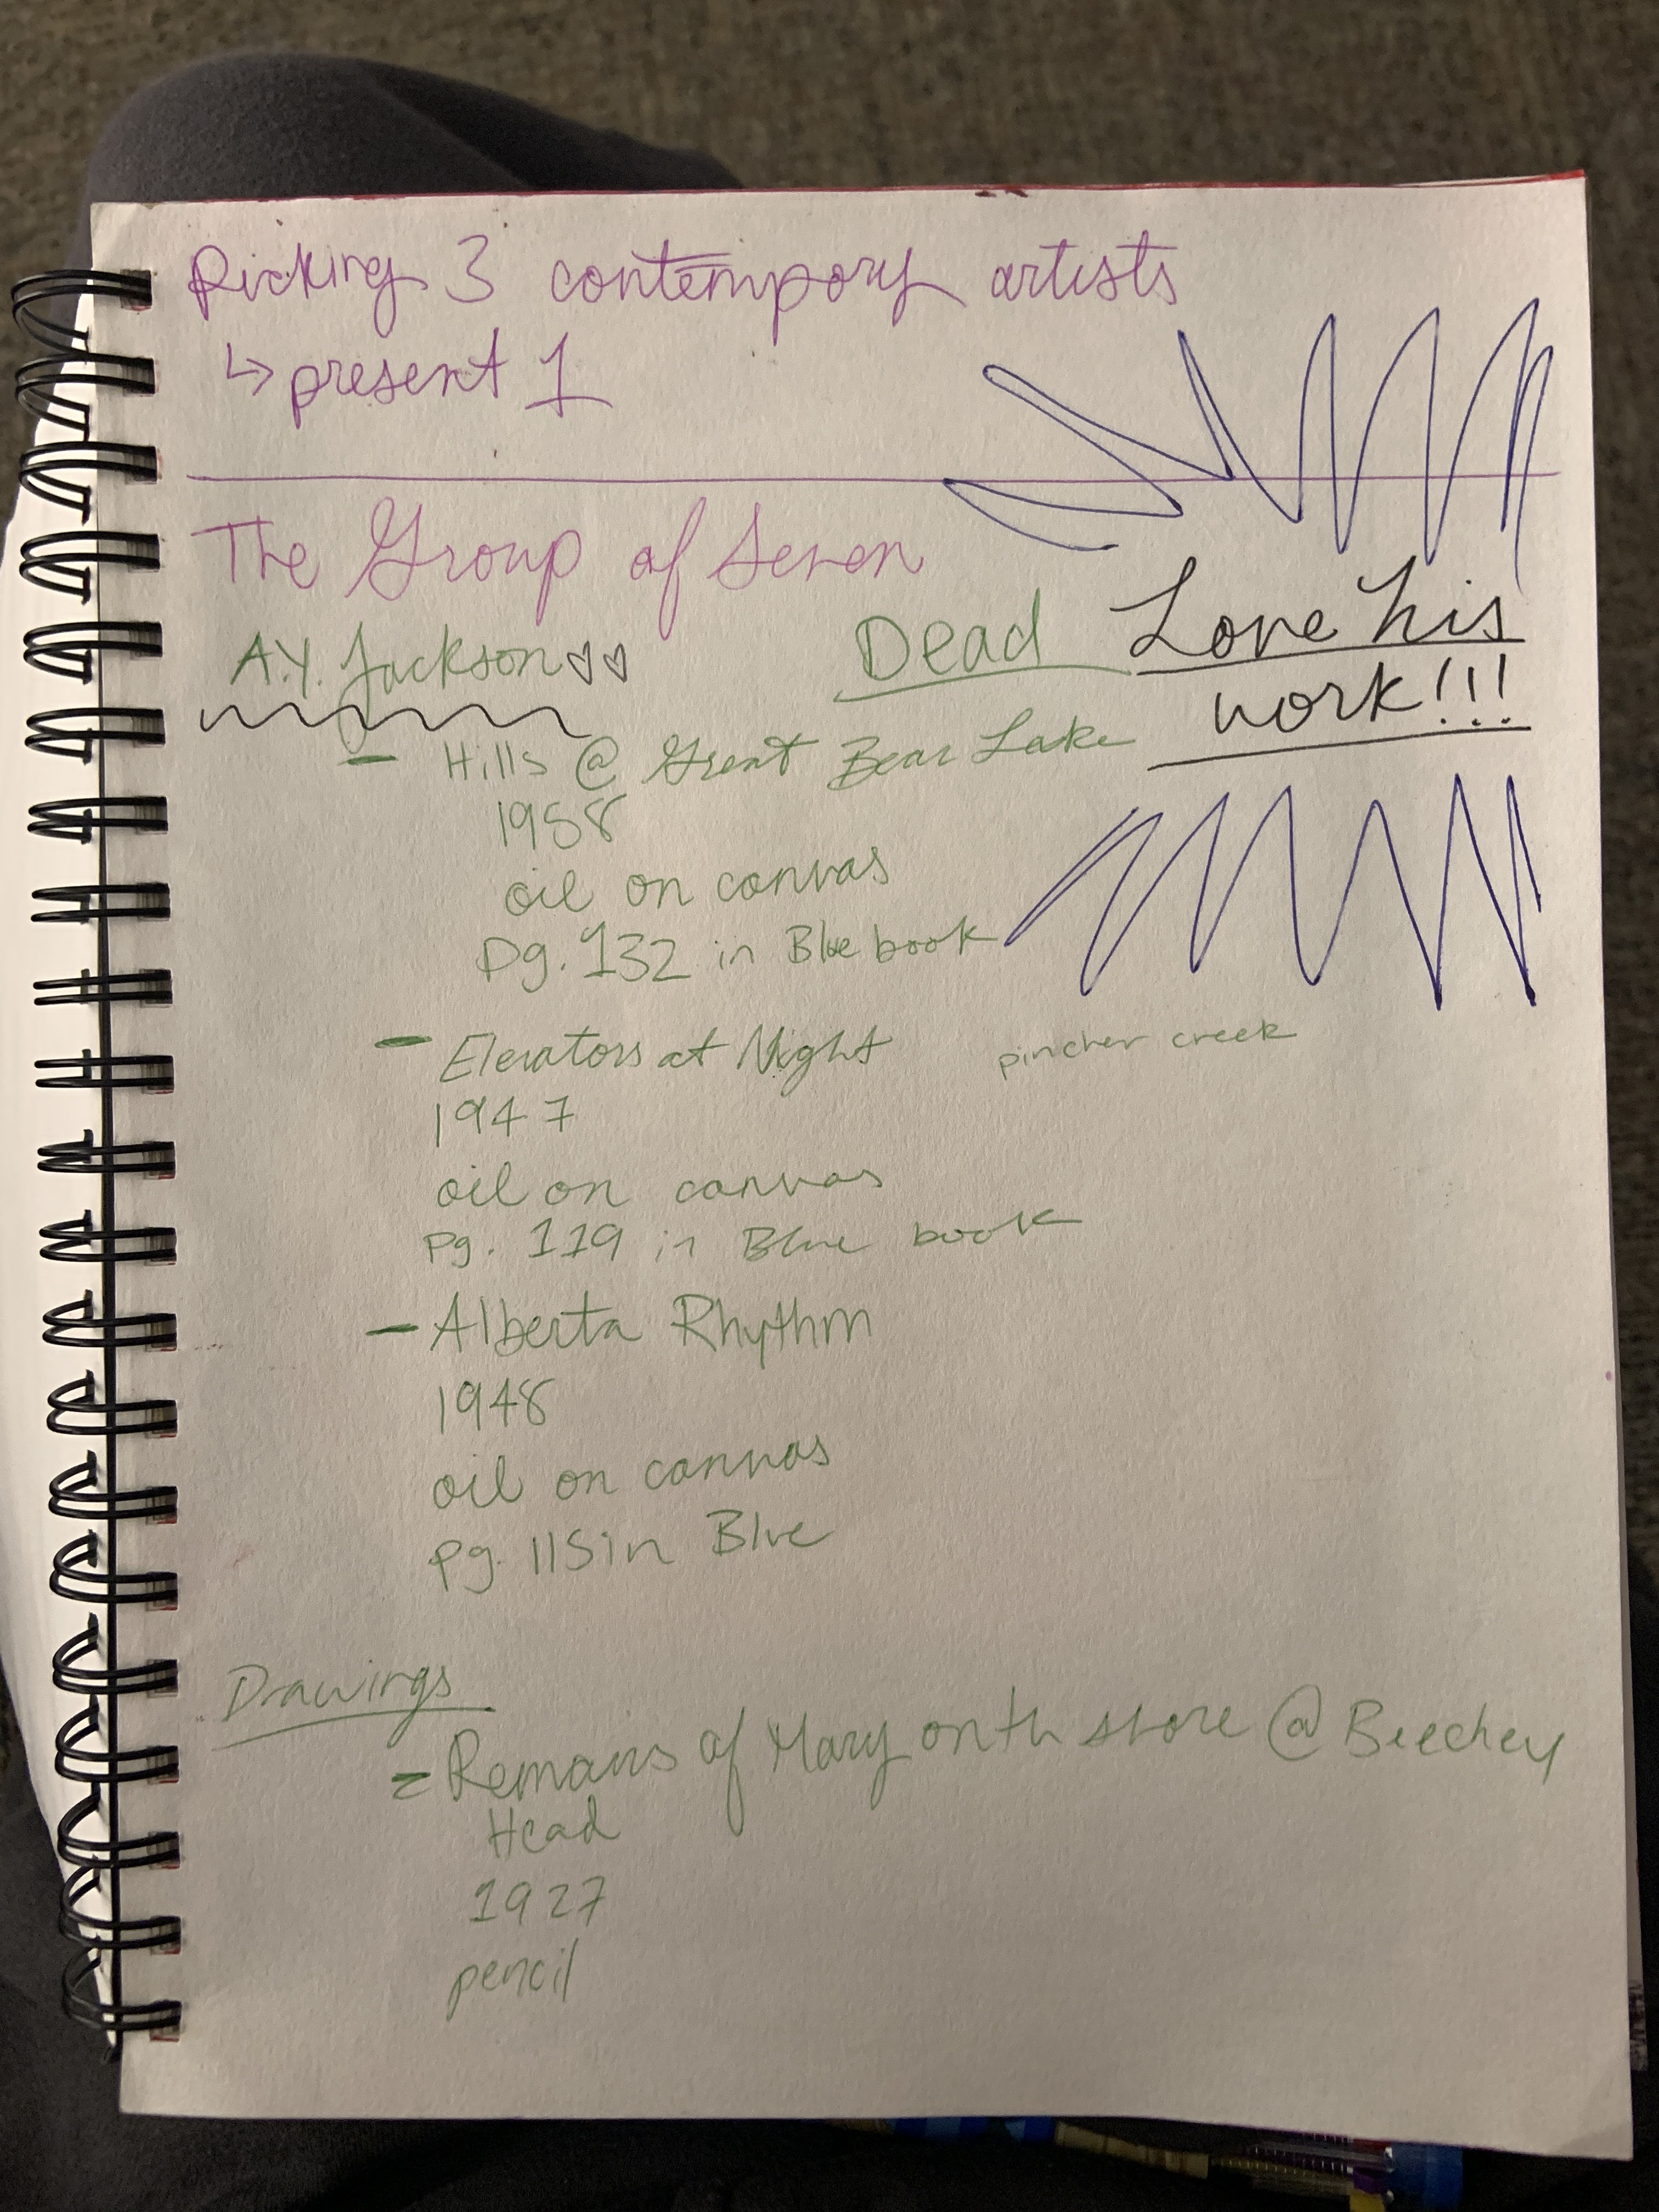 Picking 3 contempory artists
↳ present 1
The Group of Seven
A.Y. Jackson ♡♡
Dead
Love his
work!!!
- Hills @ Great Bear Lake
1958
oil on canvas
Pg. 132 in Blue book
- Elevators at Night pincher creek
1947
oil on canvas
Pg. 119 in Blue book
- Alberta Rhythm
1948
oil on canvas
Pg. 115 in Blue
Drawings
= Remains of Mary on th shore @ Beechey
Head
1927
pencil